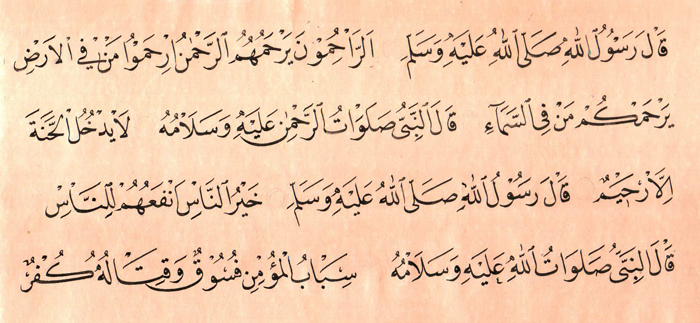 قَالَ رَسُولُ اللهِ صَلَّى اللهُ عَلَيْهِ وَسَلَّمِ الرَّاحِمُونَ يَرْحَمُهُمُ الرَّحْمٰنُ اِرْحَمُوا مَنْ فِي الْاَرْضِ
يَرْحَمْكُمْ مَنْ فِى السَّمَاءِ قَالَ النَّبِىُّ صَلَوَاتُ الرَّحْمٰنِ عَلَيْهِ وَسَلَامُهُ لَا يَدْخُلُ الْجَنَّةَ
اِلَّا رَحِيمٌ قَالَ رَسُولُ اللهِ صَلَّى اللهُ عَلَيْهِ وَسَلَّمِ خَيْرُ النَّاسِ اَنْفَعُهُمْ لِلنَّاسِ
قَالَ النَّبِىُّ صَلَوَاتُ اللهِ عَلَيْهِ وَسَلَامُهُ سِبَابُ الْمُؤْمِنِ فُسُوقٌ وَقِتَالُهُ كُفْرٌ